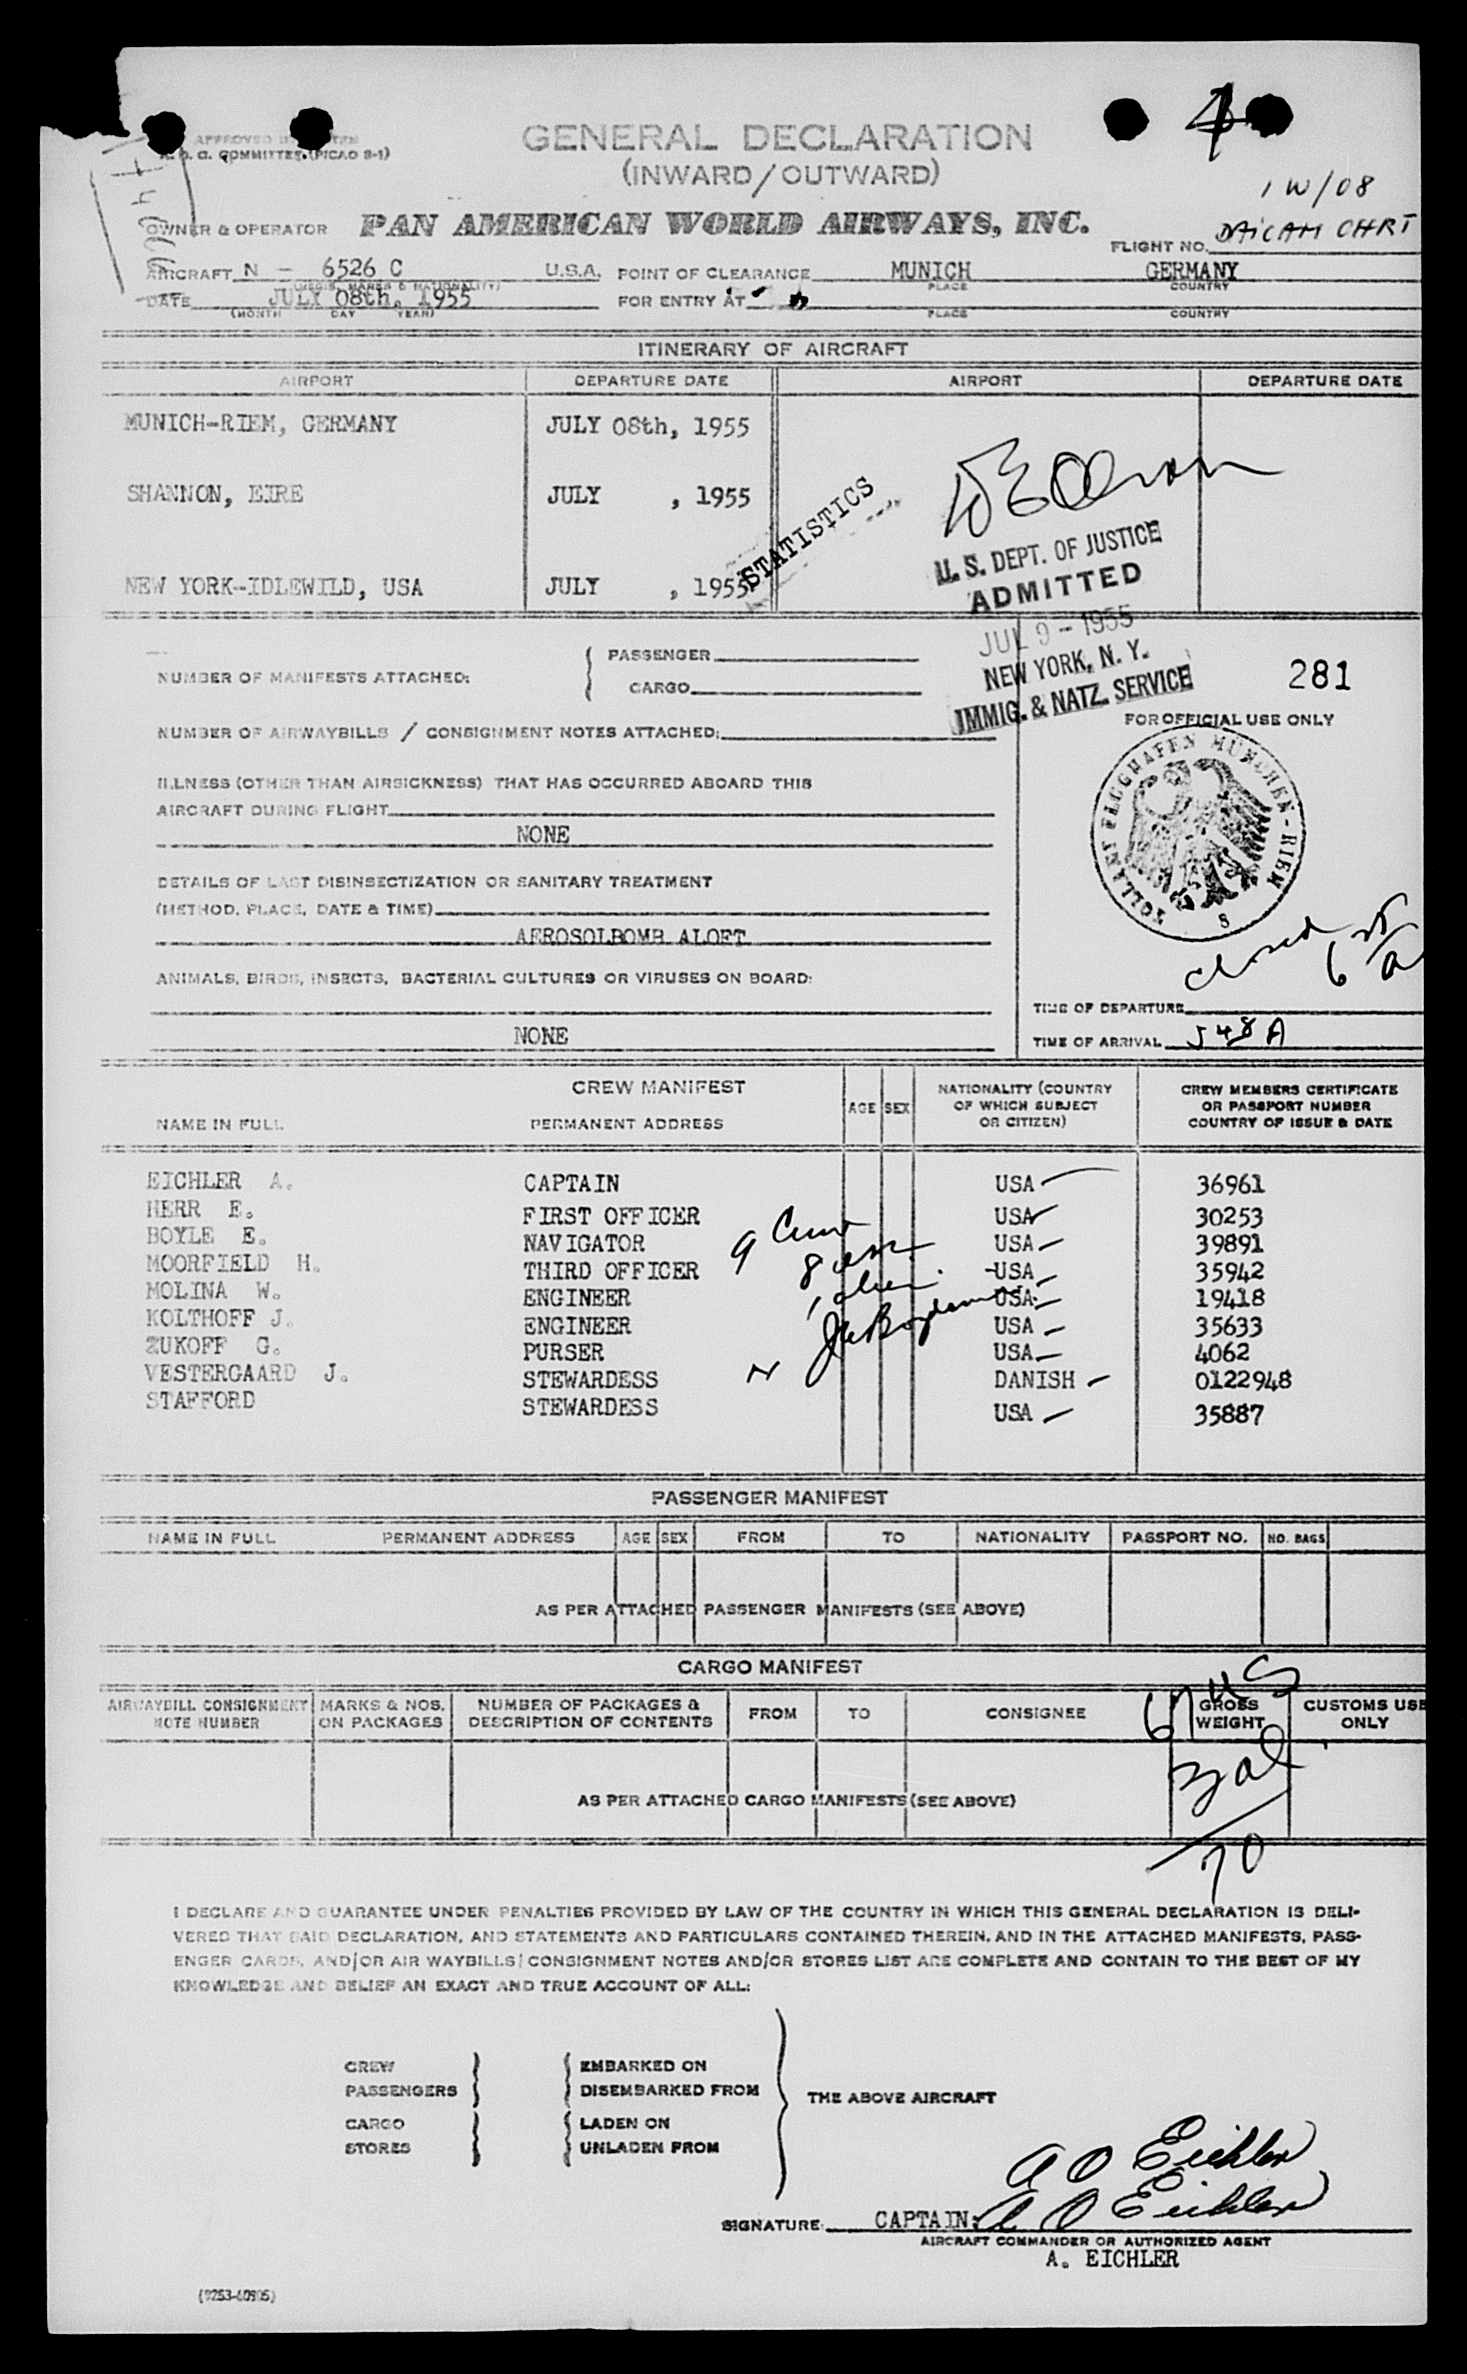 GENERAL DECLARATION
(INWARD/OUTWARD)
COMMITTEE (PICAO S-1)
1W/08
OWNER & OPERATOR PAN AMERICAN WORLD AIRWAYS, INC. FLIGHT NO.
AIRCRAFT N - 6526 C U.S.A. POINT OF CLEARANCE MUNICH GERMANY
(REGIS. MARKS & NATIONALITY) PLACE COUNTRY
DATE JULY 08th, 1955 FOR ENTRY AT
(MONTH DAY YEAR) PLACE COUNTRY
ITINERARY OF AIRCRAFT
AIRPORT DEPARTURE DATE AIRPORT DEPARTURE DATE
MUNICH-RIEM, GERMANY JULY 08th, 1955
SHANNON, EIRE JULY , 1955
STATISTICS
NEW YORK-IDLEWILD, USA JULY , 1955
U.S. DEPT. OF JUSTICE
ADMITTED
JUL 9 - 1955
NEW YORK, N. Y.
IMMIG. & NATZ. SERVICE
PASSENGER
NUMBER OF MANIFESTS ATTACHED:
CARGO
281
FOR OFFICIAL USE ONLY
NUMBER OF AIRWAYBILLS / CONSIGNMENT NOTES ATTACHED:
ZOLLAMT FLUGHAFEN MÜNCHEN-RIEM
8
ILLNESS (OTHER THAN AIRSICKNESS) THAT HAS OCCURRED ABOARD THIS
AIRCRAFT DURING FLIGHT
NONE
DETAILS OF LAST DISINSECTIZATION OR SANITARY TREATMENT
(METHOD, PLACE, DATE & TIME)
AEROSOLBOMB ALOFT
closed
ANIMALS, BIRDS, INSECTS, BACTERIAL CULTURES OR VIRUSES ON BOARD:
NONE
TIME OF DEPARTURE
TIME OF ARRIVAL 548A
CREW MANIFEST
NAME IN FULL PERMANENT ADDRESS AGE SEX NATIONALITY (COUNTRY OF WHICH SUBJECT OR CITIZEN) CREW MEMBERS CERTIFICATE OR PASSPORT NUMBER COUNTRY OF ISSUE & DATE
EICHLER A. CAPTAIN USA 36961
HERR E. FIRST OFFICER USA 30253
BOYLE E. NAVIGATOR USA 39891
MOORFIELD H. THIRD OFFICER USA 35942
MOLINA W. ENGINEER USA 19418
KOLTHOFF J. ENGINEER USA 35633
ZUKOFF G. PURSER USA 4062
VESTERGAARD J. STEWARDESS DANISH 0122948
STAFFORD STEWARDESS USA 35887
PASSENGER MANIFEST
NAME IN FULL PERMANENT ADDRESS AGE SEX FROM TO NATIONALITY PASSPORT NO. NO. BAGS
AS PER ATTACHED PASSENGER MANIFESTS (SEE ABOVE)
CARGO MANIFEST
AIRWAYBILL CONSIGNMENT NOTE NUMBER MARKS & NOS. ON PACKAGES NUMBER OF PACKAGES & DESCRIPTION OF CONTENTS FROM TO CONSIGNEE GROSS WEIGHT CUSTOMS USE ONLY
67 US
3 al
AS PER ATTACHED CARGO MANIFESTS (SEE ABOVE)
70
I DECLARE AND GUARANTEE UNDER PENALTIES PROVIDED BY LAW OF THE COUNTRY IN WHICH THIS GENERAL DECLARATION IS DELI-
VERED THAT SAID DECLARATION, AND STATEMENTS AND PARTICULARS CONTAINED THEREIN, AND IN THE ATTACHED MANIFESTS, PASS-
ENGER CARDS, AND/OR AIR WAYBILLS/CONSIGNMENT NOTES AND/OR STORES LIST ARE COMPLETE AND CONTAIN TO THE BEST OF MY
KNOWLEDGE AND BELIEF AN EXACT AND TRUE ACCOUNT OF ALL:
CREW EMBARKED ON
PASSENGERS DISEMBARKED FROM
THE ABOVE AIRCRAFT
CARGO LADEN ON
STORES UNLADEN FROM
A O Eichler
SIGNATURE: CAPTAIN: A O Eichler
AIRCRAFT COMMANDER OR AUTHORIZED AGENT
A. EICHLER